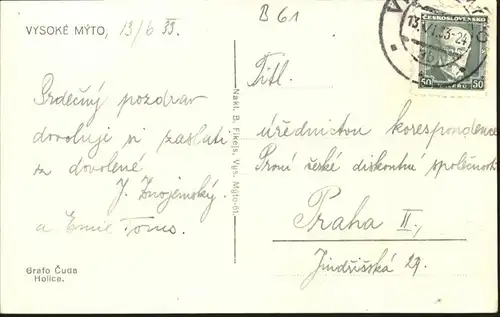 B 61
VYSOKÉ MÝTO, 13/6 33.
Srdečný pozdrav
dovoluji si zaslati
z dovolené
J. Znojemský
a Emil
Grafo Čuda
Holice.
Nakl. B. Fikejs, Vys. Mýto-61.
ČESKOSLOVENSKO
50 50
13.VI.33-24
Titl.
úřednictvu korespondence
První české diskontní společnosti
Praha II,
Jindřišská 29.